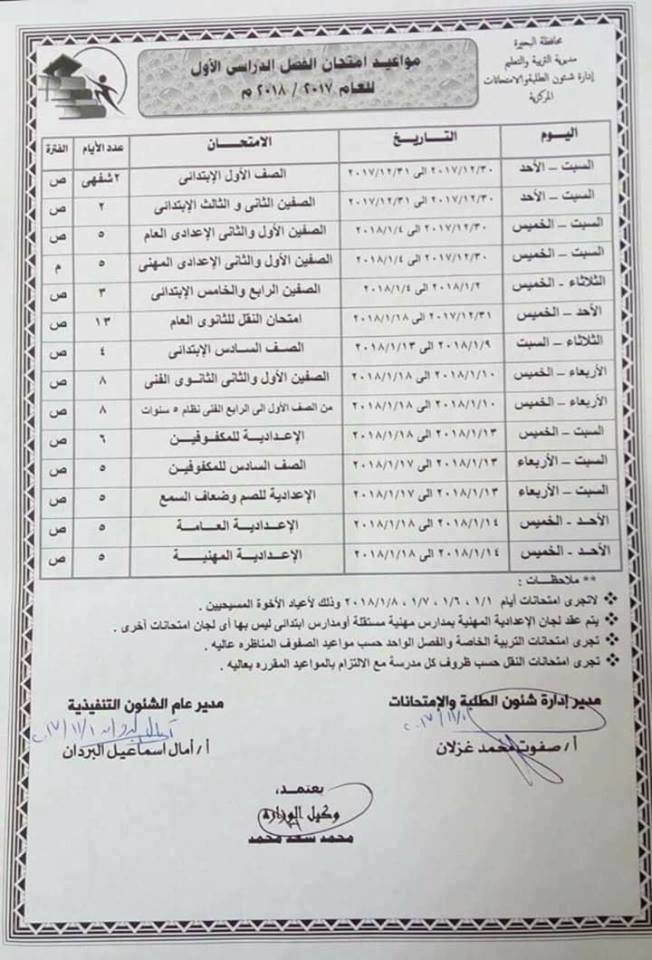 محافظة البحيرة
مديرية التربية والتعليم
إدارة شئون الطلبة والامتحانات
المركزية
مواعيد امتحان الفصل الدراسى الأول
للعام ٢٠١٧ / ٢٠١٨ م
اليوم التاريخ الامتحان عدد الأيام الفترة
السبت – الأحد ٢٠١٧/١٢/٣٠ الى ٢٠١٧/١٢/٣١ الصف الأول الإبتدائى ٢ شفهى ص
السبت – الأحد ٢٠١٧/١٢/٣٠ الى ٢٠١٧/١٢/٣١ الصفين الثانى و الثالث الإبتدائى ٢ ص
السبت – الخميس ٢٠١٧/١٢/٣٠ الى ٢٠١٨/١/٤ الصفين الأول والثانى الإعدادى العام ٥ ص
السبت – الخميس ٢٠١٧/١٢/٣٠ الى ٢٠١٨/١/٤ الصفين الأول والثانى الإعدادى المهنى ٥ م
الثلاثاء - الخميس ٢٠١٨/١/٢ الى ٢٠١٨/١/٤ الصفين الرابع والخامس الإبتدائى ٣ ص
الأحد – الخميس ٢٠١٧/١٢/٣١ الى ٢٠١٨/١/١٨ امتحان النقل للثانوى العام ١٣ ص
الثلاثاء – السبت ٢٠١٨/١/٩ الى ٢٠١٨/١/١٣ الصف السادس الإبتدائى ٤ ص
الأربعاء – الخميس ٢٠١٨/١/١٠ الى ٢٠١٨/١/١٨ الصفين الأول والثانى الثانوى الفنى ٨ ص
الأربعاء – الخميس ٢٠١٨/١/١٠ الى ٢٠١٨/١/١٨ من الصف الأول الى الرابع الفنى نظام ٥ سنوات ٨ ص
السبت – الخميس ٢٠١٨/١/١٣ الى ٢٠١٨/١/١٨ الإعدادية للمكفوفين ٦ ص
السبت – الأربعاء ٢٠١٨/١/١٣ الى ٢٠١٨/١/١٧ الصف السادس للمكفوفين ٥ ص
السبت – الأربعاء ٢٠١٨/١/١٣ الى ٢٠١٨/١/١٧ الإعدادية للصم وضعاف السمع ٥ ص
الأحد - الخميس ٢٠١٨/١/١٤ الى ٢٠١٨/١/١٨ الإعدادية العامة ٥ ص
الأحد - الخميس ٢٠١٨/١/١٤ الى ٢٠١٨/١/١٨ الإعدادية المهنية ٥ ص
** ملاحظات :
لاتجرى امتحانات أيام ١/١ ، ١/٦ ، ١/٧ ، ٢٠١٨/١/٨ وذلك لأعياد الأخوة المسيحيين .
يتم عقد لجان الإعدادية المهنية بمدارس مهنية مستقلة أومدارس ابتدائى ليس بها أى لجان امتحانات أخرى .
تجرى امتحانات التربية الخاصة والفصل الواحد حسب مواعيد الصفوف المناظره عاليه .
تجرى امتحانات النقل حسب ظروف كل مدرسة مع الالتزام بالمواعيد المقرره بعاليه .
مدير إدارة شئون الطلبة والإمتحانات
أ/ صفوت محمد غزلان
مدير عام الشئون التنفيذية
أ/ أمال اسماعيل البردان
يعتمد،
وكيل الوزارة
محمد سعد محمد